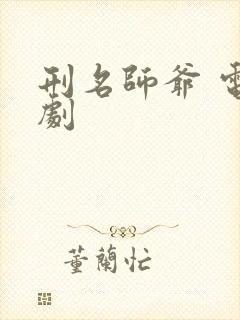 刑名師爺 電
劇
董蘭忙